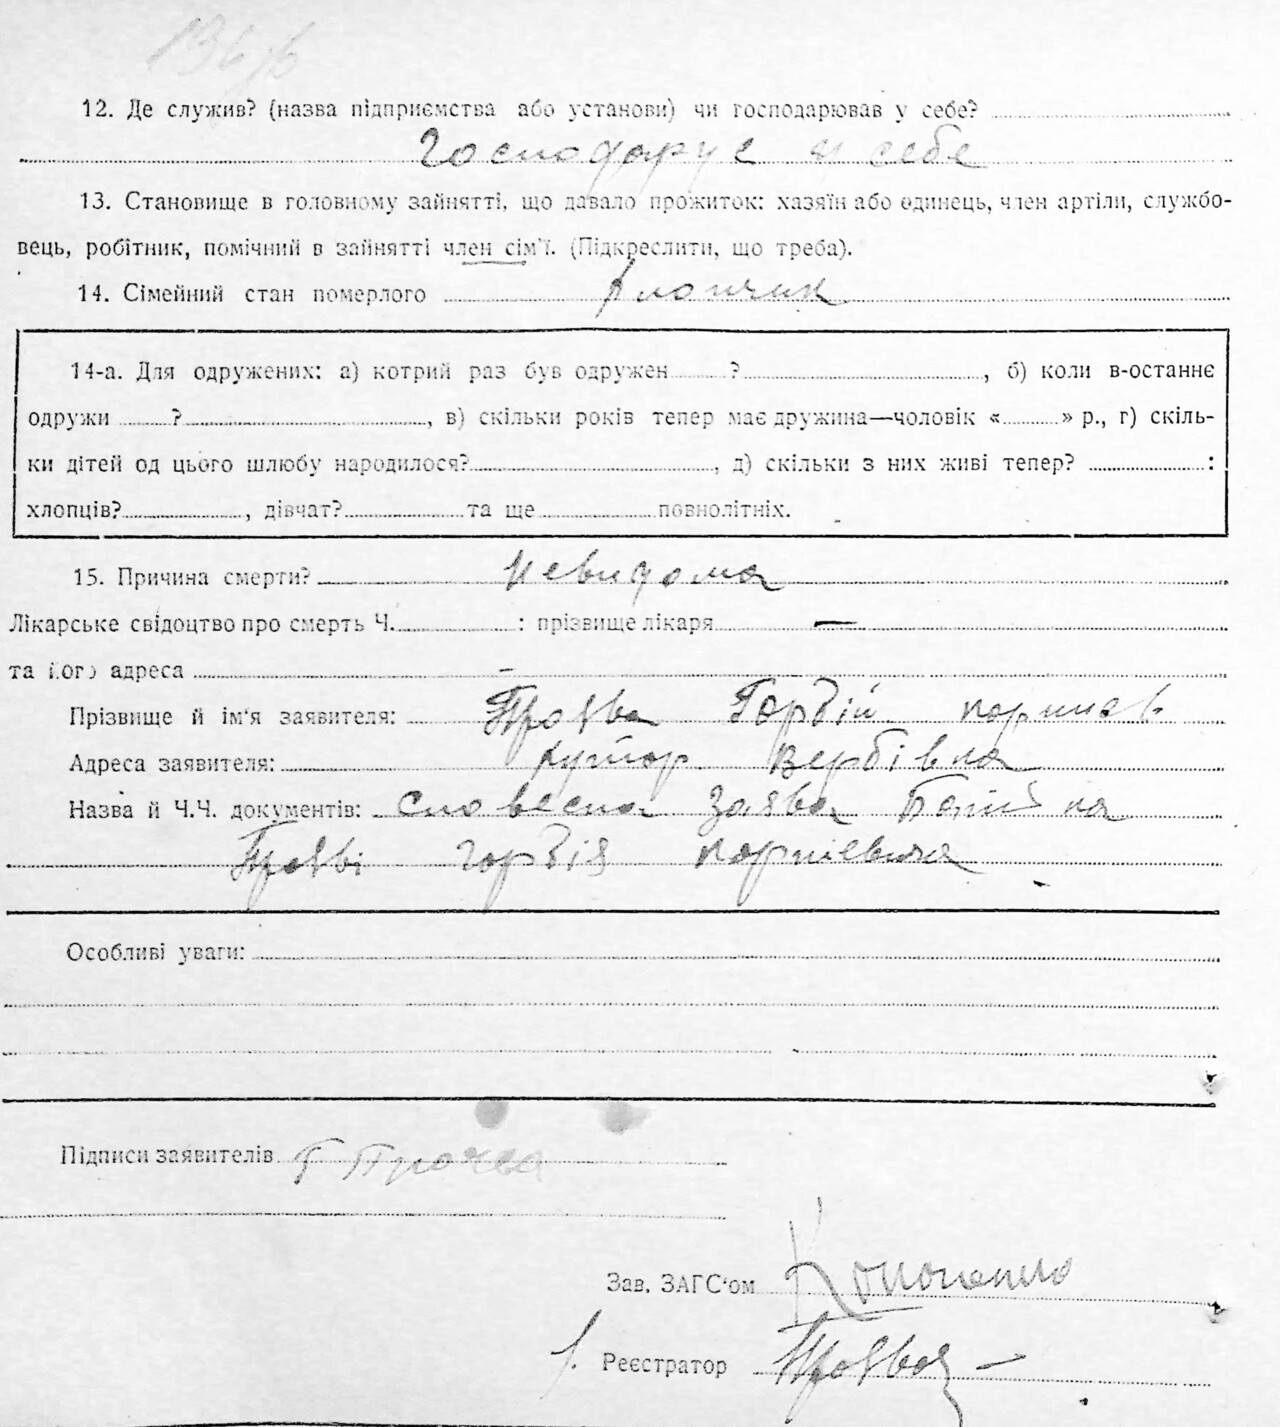 12. Де служив? (назва підприємства або установи) чи господарював у себе?
Господарує у себе
13. Становище в головному зайнятті, що давало прожиток: хазяїн або одинець, член артіли, службо-
вець, робітник, помічний в зайнятті член сім'ї. (Підкреслити, що треба).
14. Сімейний стан померлого хлопчик
14-а. Для одружених: а) котрий раз був одружен ?, б) коли в-останнє
одружи ?, в) скільки років тепер має дружина—чоловік « » р., г) скіль-
ки дітей од цього шлюбу народилося?, д) скільки з них живі тепер? :
хлопців?, дівчат? та ще повнолітніх.
15. Причина смерти? невидома
Лікарське свідоцтво про смерть Ч. : прізвище лікаря —
та його адреса –
Прізвище й ім'я заявителя: Гордій
Адреса заявителя: хутор Вербівка
Назва й Ч.Ч. документів: словесна заява Батька
Гордія Корнієвича
Особливі уваги:
Підписи заявителів Г
Зав. ЗАГС'ом Кононенко
Реєстратор